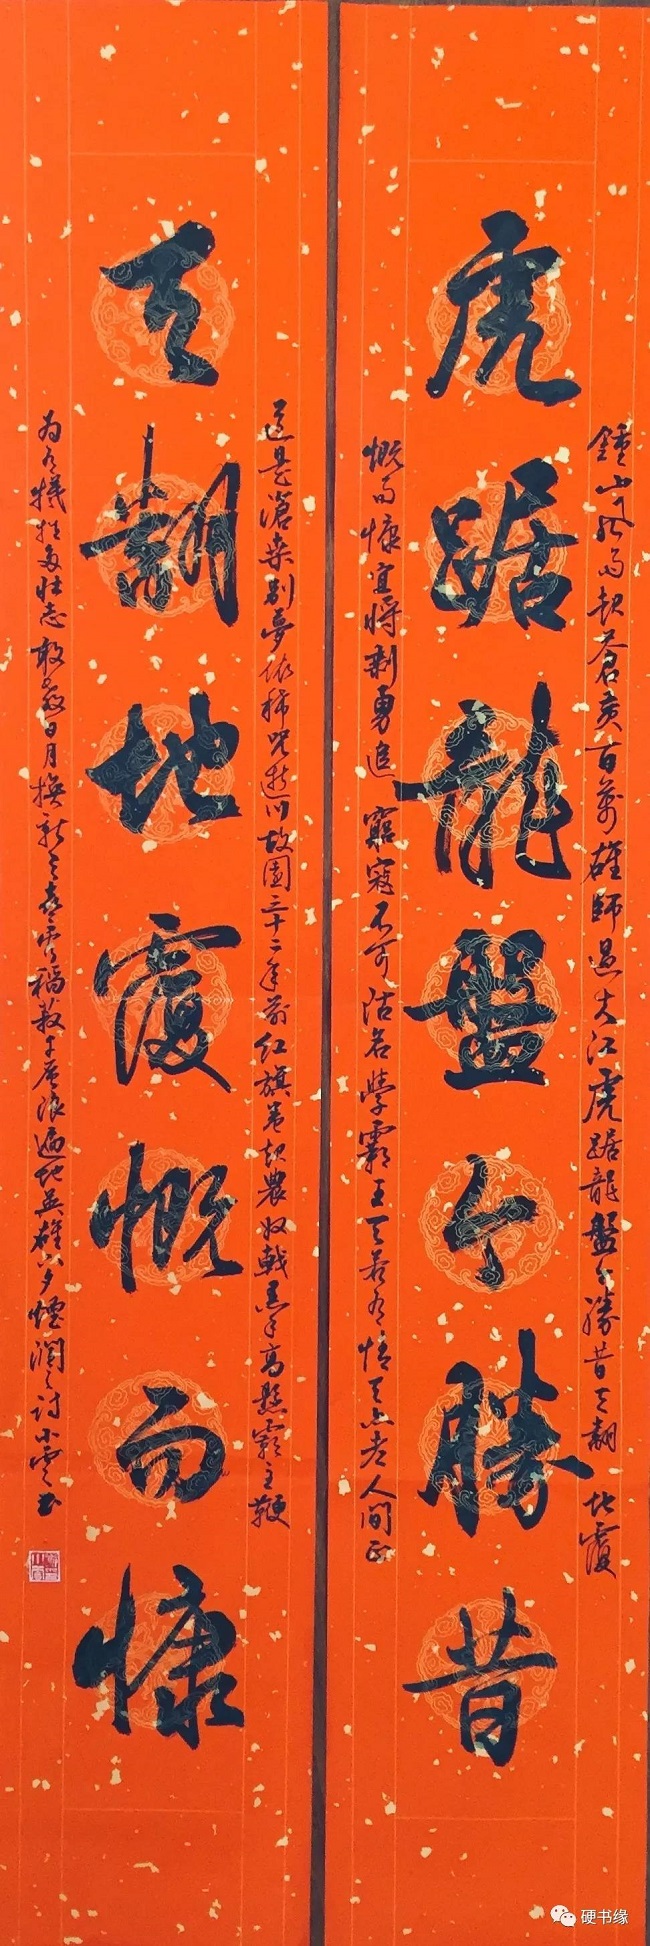 虎踞龍盤今勝昔
天翻地覆慨而慷
鍾山風雨起蒼黃百萬雄師過大江虎踞龍盤今勝昔天翻地覆
慨而慷宜將剩勇追窮寇不可沽名學霸王天若有情天亦老人間正
道是滄桑別夢依稀咒逝川故園三十二年前紅旗卷起農奴戟黑手高懸霸主鞭
為有犧牲多壯志敢教日月換新天喜看稻菽千層浪遍地英雄下夕煙潤之詩小雲书
硬书缘